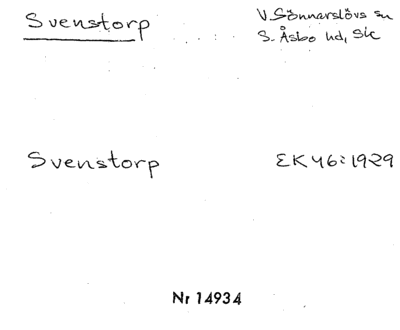 Svenstorp
V. Sönnarslövs sn
S. Åsbo hd, Sk
Svenstorp
EK 46: 1929
Nr 14934